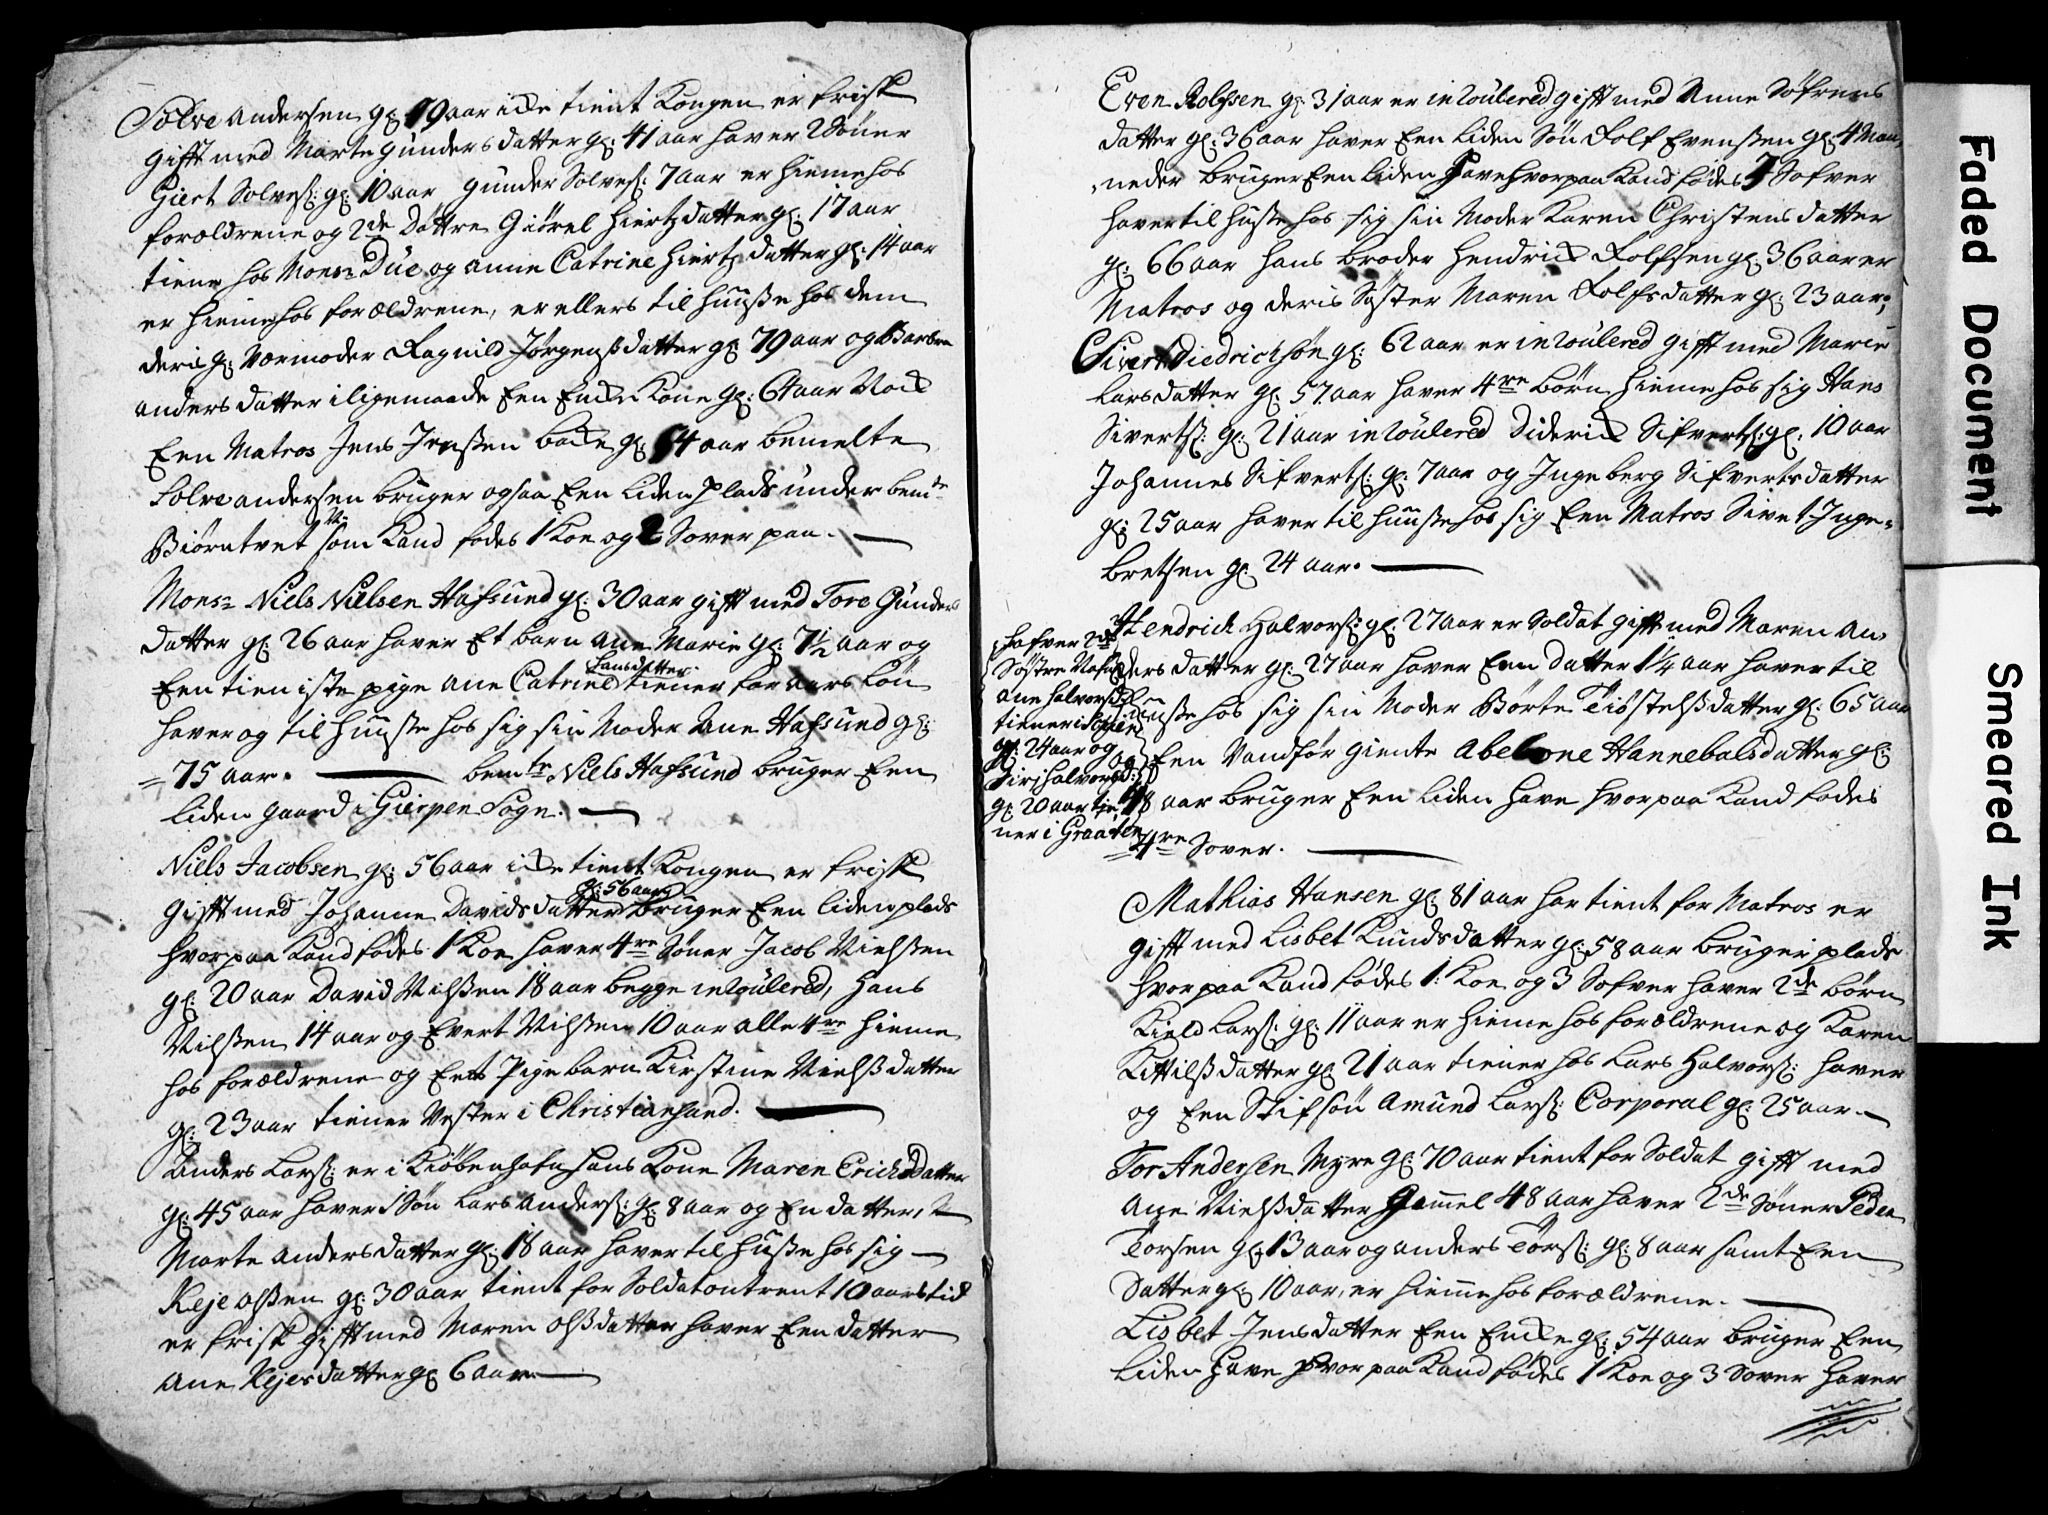 Solve Andersen gl: 49 aar icke tient Kongen er frisk
gift med Marte Gundersdatter gl: 41 aar haver 2 Sönner
Giert Solves: gl: 10 aar Gunder Solves: 7 aar er hieme hos
foroeldrene og 2de Döttre Giörel Hiertzdatter gl: 17 aar
tiene hos Monsr Düe og Anne Catrine Hiertzdatter gl: 14 aar
er hieme hos foroeldrene, er ellers til huuße hos dem
deris g: Vermoder Ragnild Jörgenßdatter gl: 79 aar og Barbra
Andersdatter iligemaade Een Encke Kone gl: 64 aar Nock
Een Matros Jens Jenßen gl: 64 aar bemelte
Solve Andersen bruger ogsaa Een liden plads under bemte
Biörntvet som Kand födes 1 Koe og 2 Sover paa.
Monsr Niels Nielsen Hafsund gl: 30 aar gift med Tore Gunders
datter gl: 26 aar haver Et barn Ane Marie gl: 7½ aar og
Een tieniste pige Ane Catrine Hansdatter tiener for aars lön
haver og til huuße hos sig sin Moder Ane Hafsund gl:
75 aar. bemte Niels Hafsund bruger Een
liden gaard i Gierpen Sogn.
Niels Jacobsen gl: 56 aar icke tient Kongen er frisk
gift med Johanne Davidsdatter gl: 56 aar bruger Een liden plads
hvorpaa Kand födes 1 Koe haver 4re Söner Jacob Nielßen
gl: 20 aar David Nilßen 18 aar begge inroulered, Hans
Nilßen 14 aar og Evert Nilßen 10 aar alle 4re hieme
hos foroeldrene og Eet Pigebarn Kirstine Nielßdatter
gl: 23 aar tiener Vester i Christiansand.
Anders Lars: er i Kiöbenhafn hans Kone Maren Erichsdatter
gl: 45 aar haver 1 Sön Lars Anders: gl: 8 aar og En datter
Marte Andersdatter gl: 18 aar haver til huße hos sig
Keje Olßen gl: 30 aar tient for Soldat ontrent 10 aars tid
er frisk gift med Maren Olßdatter haver Een datter
Ane Kejesdatter gl: 6 aar
Even Rolfsen gl: 31 aar er inroulered gift med Anne Söfrens
datter gl: 36 aar haver Een liden Sön Rolf Evenßen gl: 4 Maa
neder bruger Een liden Have hvorpaa Kand födes 3 Sofver
haver til huße hos sig sin Moder Karen Christensdatter
gl: 66 aar hans broder Hendrick Rolfsen gl: 36 aar er
Matros og deris Söster Maren Rolfsdatter gl: 23 aar.
Sivert Diedrichsön gl: 62 aar er inroulered gift med Marie
Larsdatter gl: 57 aar haver 4re börn hieme hos sig Hans
Siverts: gl: 21 aar inroulered Diderick Sifverts: gl: 10 aar
Johannes Sifverts: gl: 7 aar og Ingeberg Sifvertsdatter
gl: 25 aar haver til huuße hos sig Een Matros Sivet Inge=
bretsen gl: 24 aar.
Hendrich Halvors: gl: 27 aar er Soldat gift med Maren An
ders datter gl: 27 aar haver Een datter 1¼ aar haver til
huuße hos sig sin Moder Börte Tiöstelßdatter gl: 65 aar
og Een Vandför giente Abelone Hannebalsdatter gl:
48 aar bruger Een liden have hvorpaa Kand födes
4re Sover.
hafver 2de
Söstre
Ane Halvorsd:
tiener i
gl: 24 aar og
Siri Halvorsd:
gl: 20 aar tie
ner i Graaten
Mathias Hansen gl: 81 aar har tient for Matros er
gift med Lisbet Knudsdatter gl: 58 aar bruger plads
hvorpaa Kand födes 1: Koe og 3 Sofver haver 2de börn
Kield Lars: gl: 11 aar er hieme hos foroeldrene og Karen
Kittilßdatter gl: 21 aar tiener hos Lars Halvors: haver
og Een Stifsön Amund Lars: Corporal gl: 25 aar
Tor Andersen Myre gl: 70 aar tient for Soldat gift med
Ane Nielßdatter Gammel 48 aar haver 2de Söner Peder
Torsen gl: 13 aar og Anders Törs: gl: 8 aar samt Een
datter gl: 10 aar, er hiemme hos foroeldrene.
Lisbet Jensdatter Een Encke gl: 54 aar bruger Een
liden Have hvorpaa Kand födes 1 Koe og 3 Sover haver
Faded Document
Smeared Ink